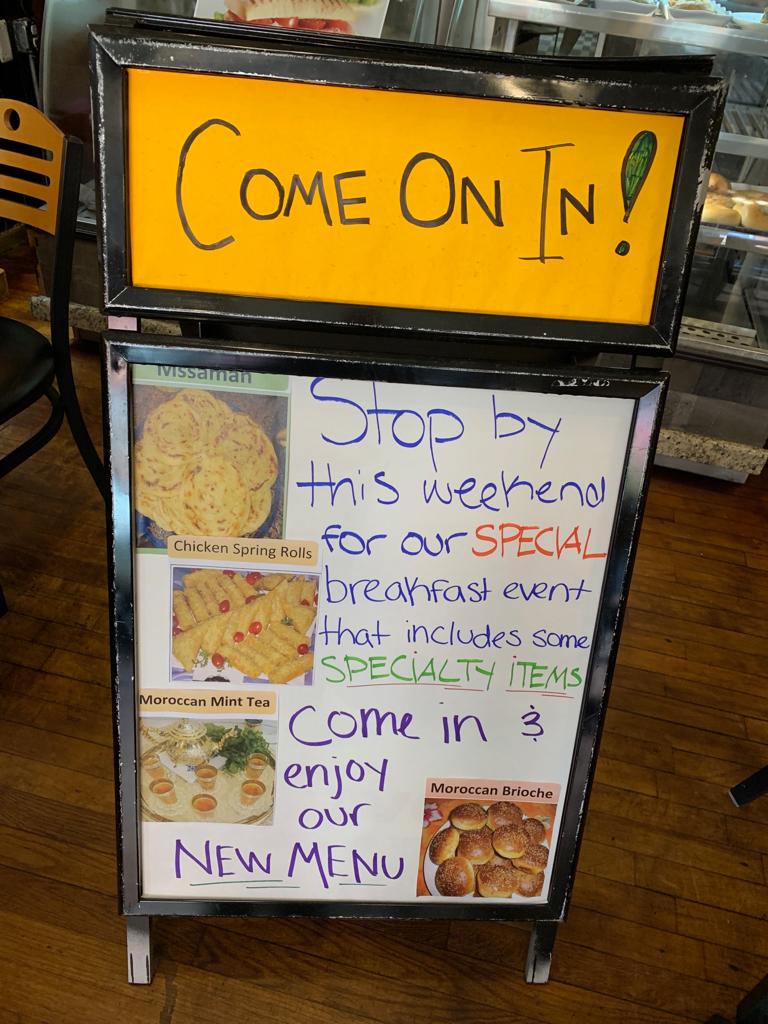 COME ON IN!
Mssaman
Stop by
this weekend
Chicken Spring Rolls
for our SPECIAL
breakfast event
that includes some
SPECIALTY ITEMS
Moroccan Mint Tea
Come in &
enjoy
our
Moroccan Brioche
NEW MENU